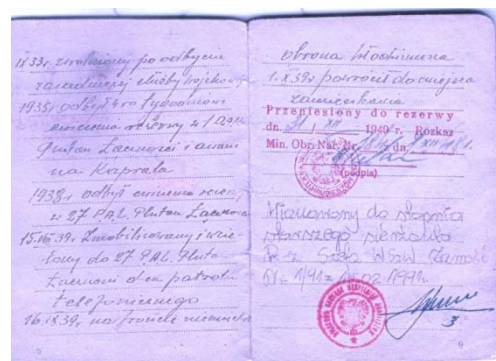 IX 33r. zwolniony po odbyciu
zasadniczej służby wojskowej
1935r odbył 4ro tygodniowe
ćwiczenia rezerwy w 1
Pluton Łączności i awans
na Kaprala
1938r. odbył ćwiczenia rezerwy
w 27 PAL. Pluton Łączności
15.VIII 39r. Zmobilizowany i wcie-
lony do 27 PAL. Pluto
Łączności d-ca patrolu
telefonicznego
16.IX.39r. na froncie
obrona Włodzimierza
1.X 39r. powrócił do miejsca
zamieszkania
Przeniesiony do rezerwy
dn. 1949 r. Rozkaz
Min. Obr. Nar. Nr. dn.
(podpis)
Mianowany do stopnia
starszego sierżanta
R-z Szefa WSzW Zamość
Nr. 1/91 z 15.02.1991r.
3
9